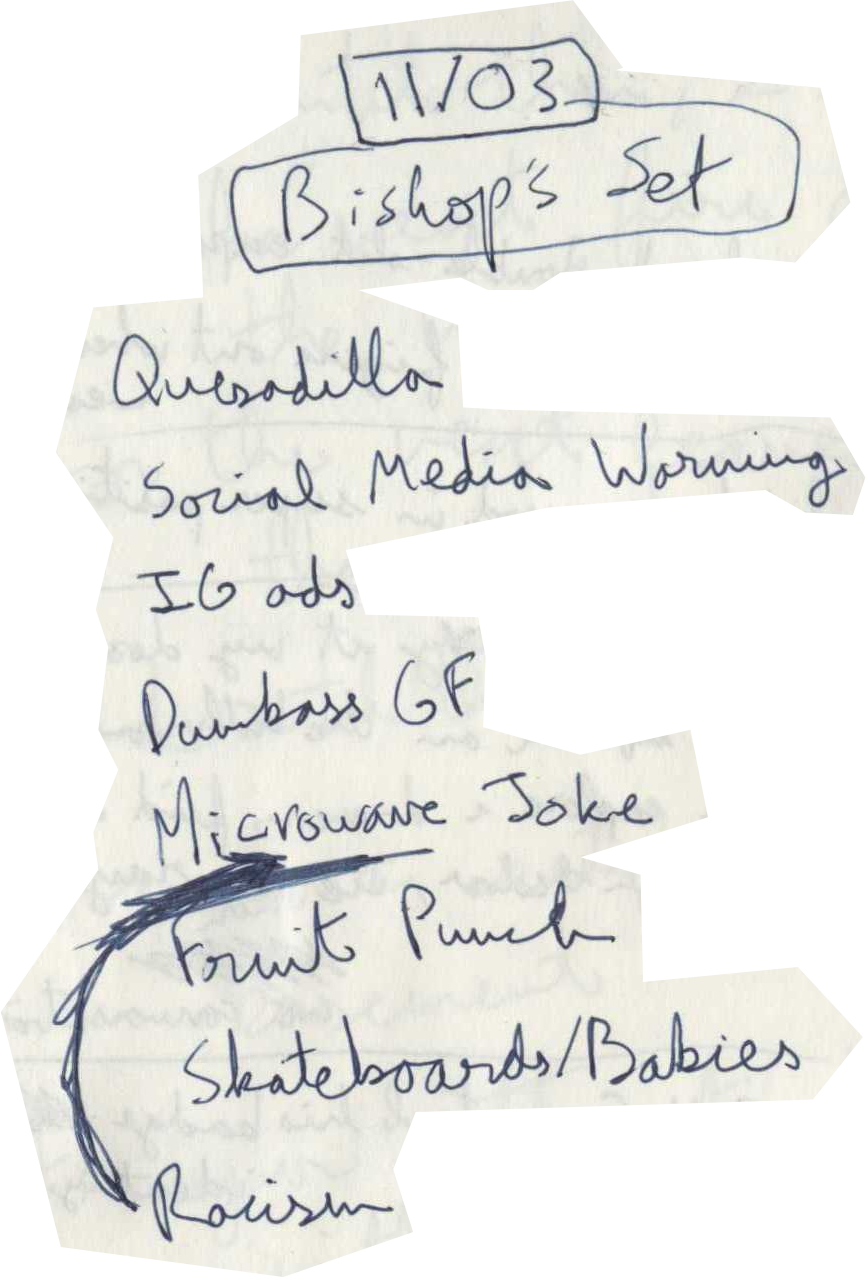 11/03
Bishop's Set
Quesadilla
Social Media Warning
IG ads
Dumbass GF
Microwave Joke
Fruit Punch
Skateboards/Babies
Racism